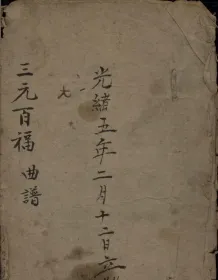 光緒五年二月十二日立
三元百福 曲譜